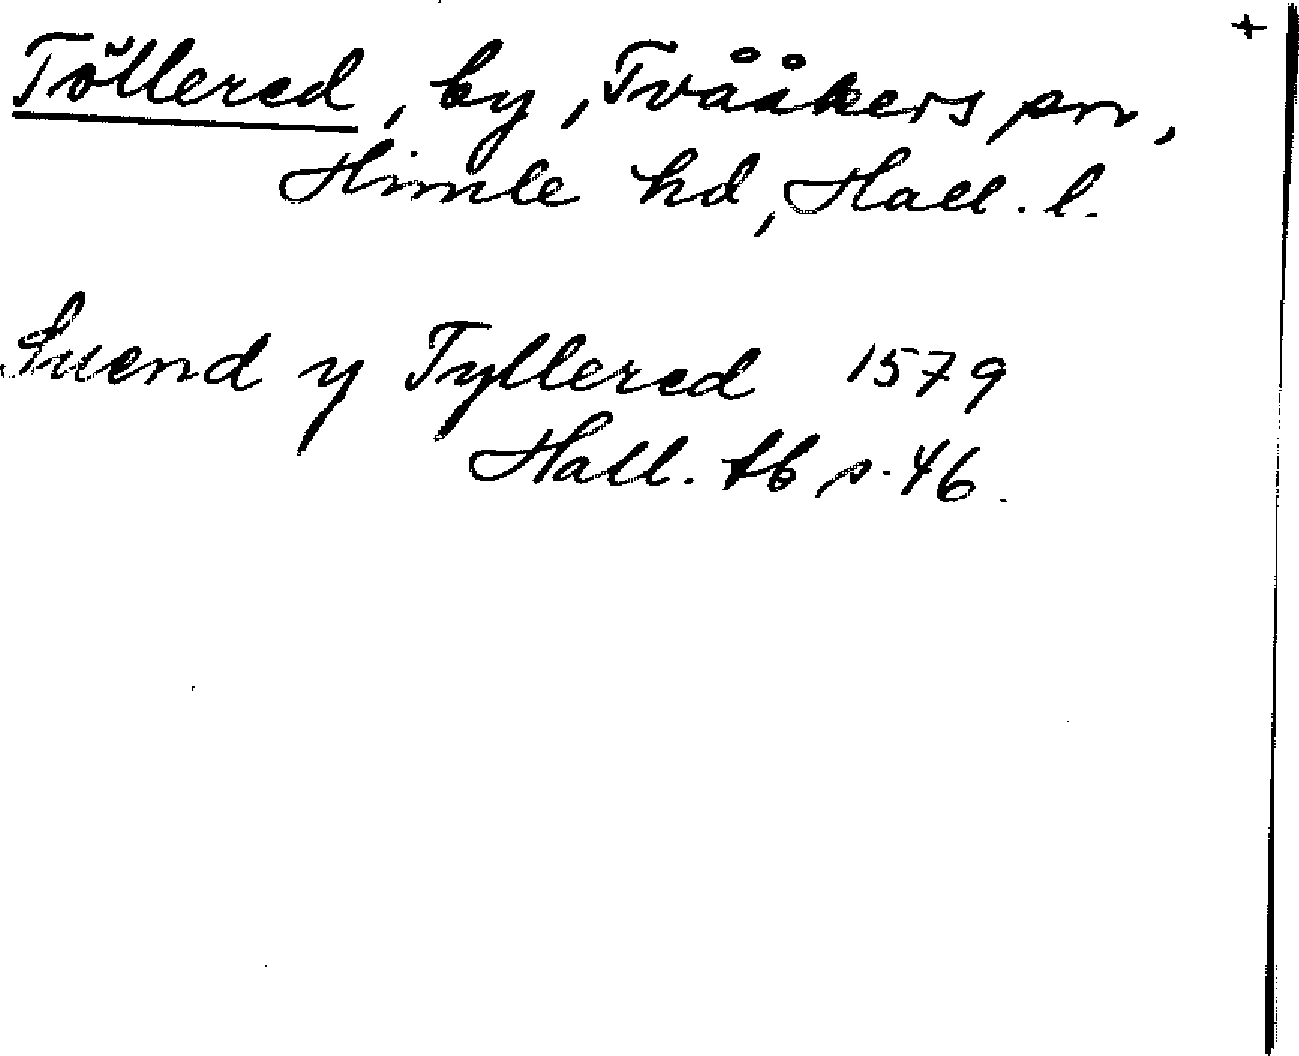 +
Töllered, by, Tvååkers sn,
Himle hd, Hall. l.
Suend y Tyllered 1579
Hall. tb s. 46.